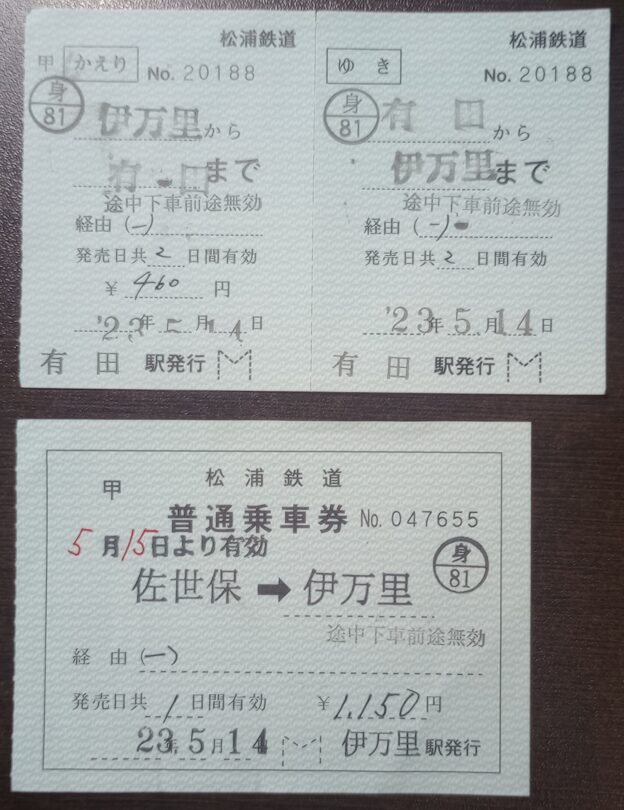 松浦鉄道
甲 かえり No. 20188
身 81
伊万里から
有田まで
途中下車前途無効
経由 (一)
発売日共 2 日間有効
¥ 460 円
'23年 5月 14日
有田駅発行
松浦鉄道
ゆき No. 20188
身 81
有田から
伊万里まで
途中下車前途無効
経由 (一)
発売日共 2 日間有効
'23年 5月 14日
有田駅発行
松浦鉄道
甲
普通乗車券 No. 047655
5月15日より有効
身 81
佐世保➡伊万里
途中下車前途無効
経由 (一)
発売日共 1 日間有効 ¥1,150円
23年 5月 14
伊万里駅発行